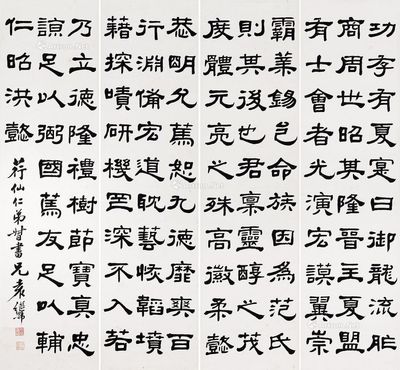 功存有夏寔曰御龍流胙
商周世昭其隆晉主夏盟
有士會者光演宏謨翼崇
霸業錫邑命族因為范氏
則其後也君稟靈醇之茂
度體元亮之殊高徽柔懿
恭明允篤恕九德靡爽百
行淵備宏道耽藝恢韜墳
藉探嘖研機罔深不入若
乃立德隆禮樹節寶真忠
諒足以弼國篤友足以輔
仁昭洪懿
荇仙仁弟督書 兄袁